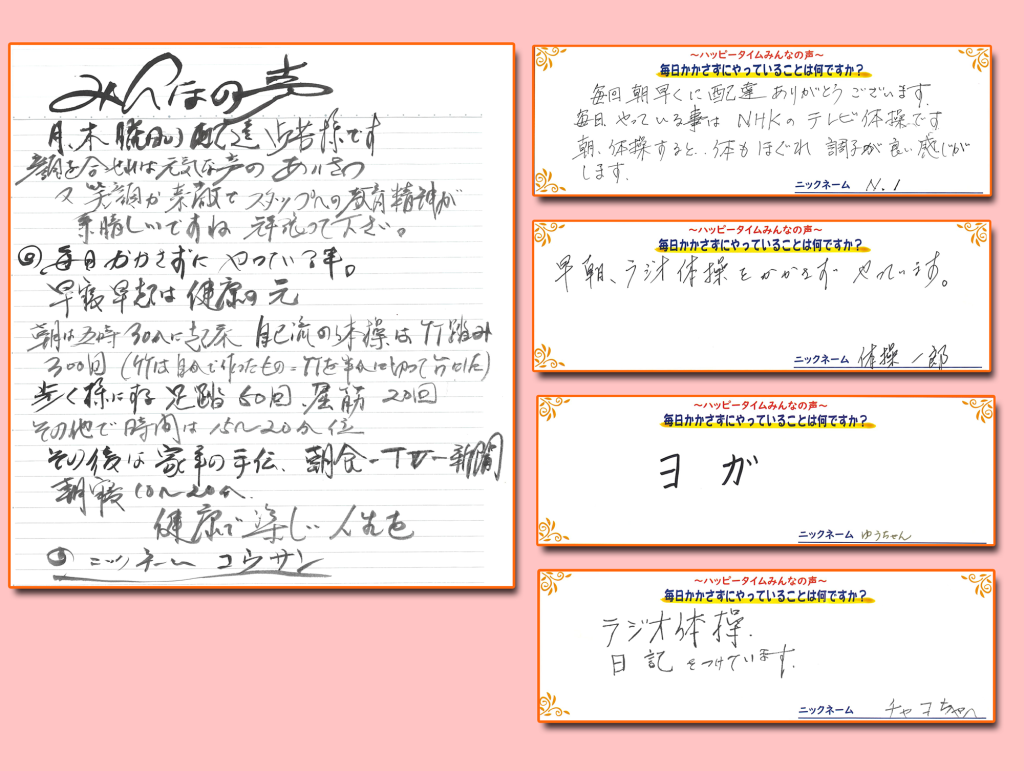 みんなの声
月、木 配達 皆様です
顔を合せれば元気な声のあいさつ
又笑顔が素敵でスタッフへの教育精神が
素晴しいですね 頑張って下さい。
毎日かかさずにやっている事。
早寝早起は健康の元
朝は五時30分に起床 自己流の体操は竹踏み
300回 (竹は自分で作ったもの=竹を半分に切って
歩く様にする 足踏 50回、屋筋 20回
その他で時間は15〜20分位
その後は家事の手伝、朝食ーTVー新聞
朝寝10〜20分.
健康で楽しい人生を
ニックネーム コウサン
〜ハッピータイムみんなの声〜
毎日かかさずにやっていることは何ですか？
毎回朝早くに配達ありがとうございます.
毎日やっている事は NHKのテレビ体操です
朝、体操すると、体もほぐれ 調子が良い感じが
します.
ニックネーム N.I
〜ハッピータイムみんなの声〜
毎日かかさずにやっていることは何ですか？
早朝、ラジオ体操をかかさず やっています。
ニックネーム 体操一郎
〜ハッピータイムみんなの声〜
毎日かかさずにやっていることは何ですか？
ヨガ
ニックネーム ゆうちゃん
〜ハッピータイムみんなの声〜
毎日かかさずにやっていることは何ですか？
ラジオ体操.
日記をつけています.
ニックネーム チャコちゃん